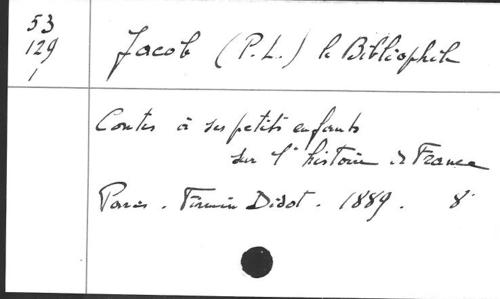 53
129
1
Jacob (P.L.) le Bibliophile
Contes à ses petits enfants
sur l'histoire de France
Paris. Firmin Didot. 1889. 8°